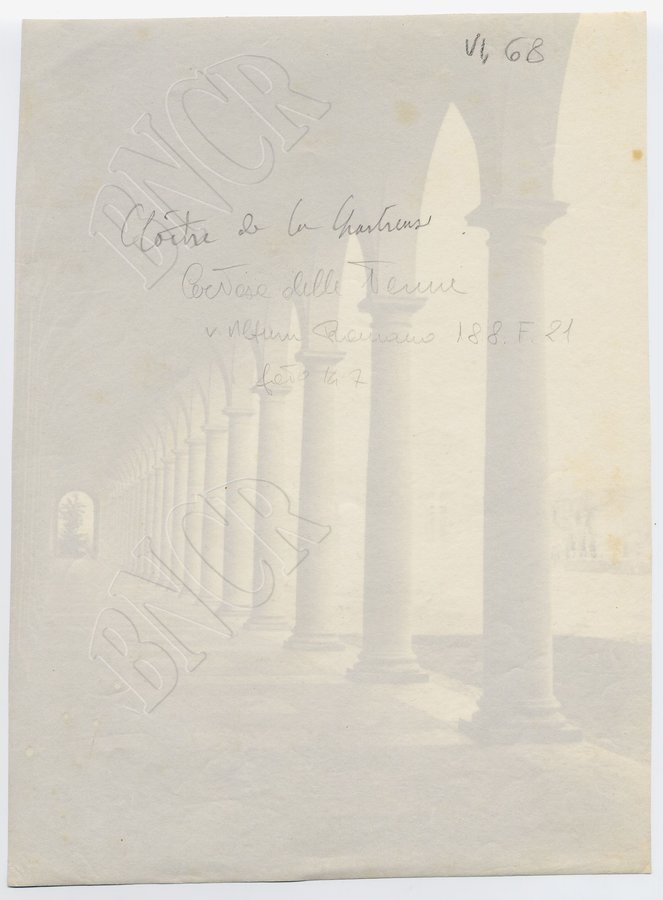 VI, 68
Cloître de la Chartreuse
Certosa delle Terme
v. Album Romano 188. F. 21
foto n. 7
BNCR
BNCR